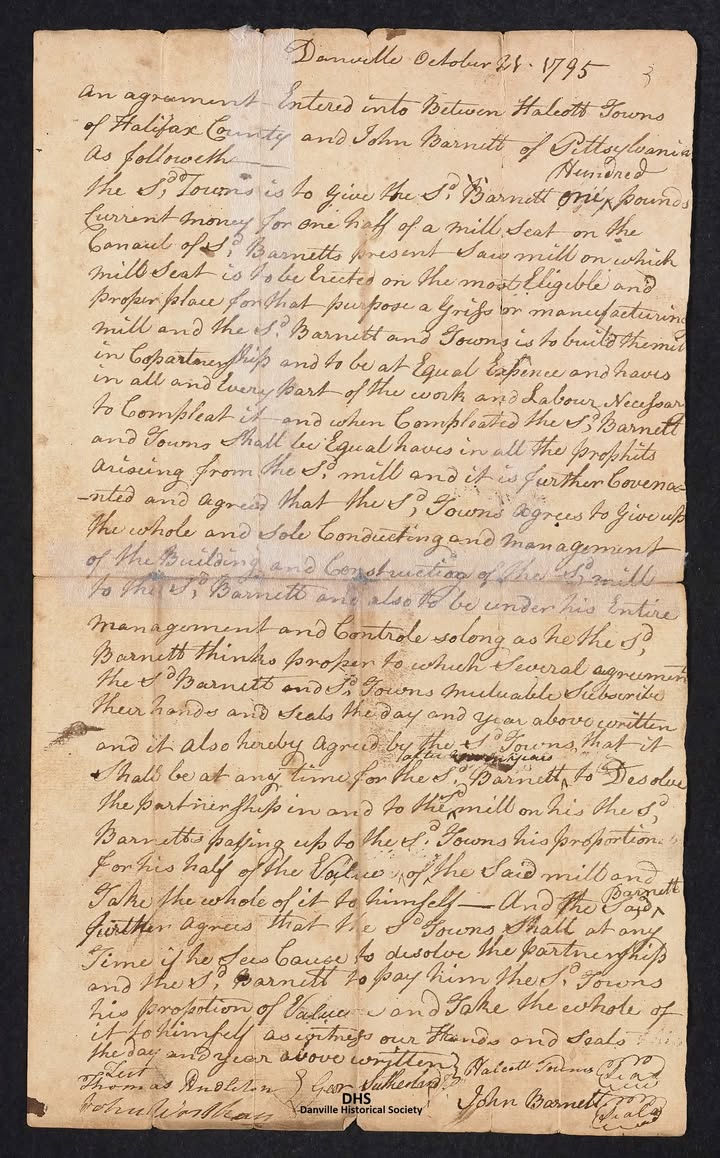 Danville October 21. 1795
An agreement Entered into Between Halcott Towns
of Halifax County and John Barnett of Pittsylvania
As followeth
Hundred
the Sd. Towns is to Give the Sd. Barnett one pounds
Current money for one half of a mill Seat on the
Canaul of Sd. Barnetts present Saw mill on which
mill Seat is to be Erected on the most Eligible and
proper place for that purpose a Griss or manufacturing
mill and the Sd. Barnett and Towns is to build the mill
in Copartnership and to be at Equal Expence and haves
in all and Every part of the work and Labour Necessar
to Compleat it and when Compleated the Sd. Barnett
and Towns Shall be Equal haves in all the prophits
arising from the Sd. mill and it is further Covena-
-nted and agreed that the Sd. Towns agrees to Give up
the whole and Sole Conducting and management
of the Building and Construction of the Sd. mill
to the Sd. Barnett and also to be under his Entire
management and Controle solong as he the Sd.
Barnett thinks proper to which Several agreemen
the Sd. Barnett and Sd. Towns mutuable Subscribe
their hands and Seals the day and year above written
and it also hereby Agreed by the Sd. Towns, that it
after years
Shall be at any time for the Sd. Barnett, to Desolve
the partnership in and to the Sd. mill on his the Sd.
Barnetts paying up to the Sd. Towns his proportion
for his half of the Value of the Said mill and
Take the whole of it to himself — And the Said
Barnett
further agrees that the Sd. Towns Shall at any
Time if he Sees Cause to desolve the partnership
and the Sd. Barnett to pay him the Sd. Towns
his propotion of Value and Take the whole of
it to himself as witness our Hands and Seals
the day and year above written
Test
Thomas Pindleton Geor Sutherland Halcott Towns Seal
John Worsham John Barnett Seal
DHS
Danville Historical Society